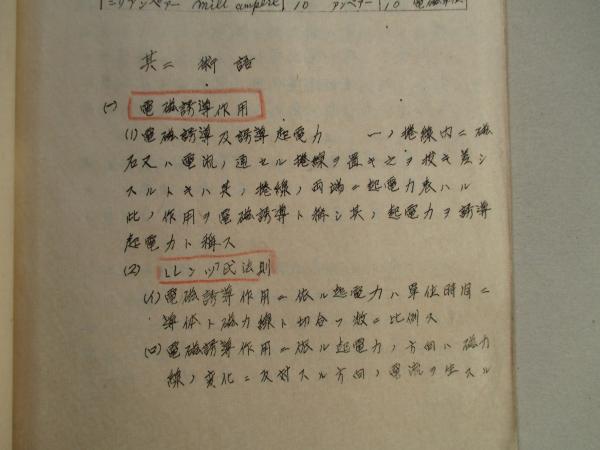 ミリアンペアー mill ampere 10 アンペアー 10 電磁単位
其二 術語
(一) 電磁誘導作用
(1) 電磁誘導及誘導起電力 一ノ捲線内ニ磁
石又ハ電流ノ通セル捲線ヲ置キ之ヲ抜キ差シ
スルトキハ其ノ捲線ノ両端ニ起電力表ハル
此ノ作用ヲ電磁誘導ト称シ其ノ起電力ヲ誘導
起電力ト称ス
(2) 「レンツ」氏法則
(イ) 電磁誘導作用ニ依ル起電力ハ単位時間ニ
導体ト磁力線ト切合フ数ニ比例ス
(ロ) 電磁誘導作用ニ依ル起電力ノ方向ハ磁力
線ノ変化ニ反対スル方向ノ電流ヲ生スル